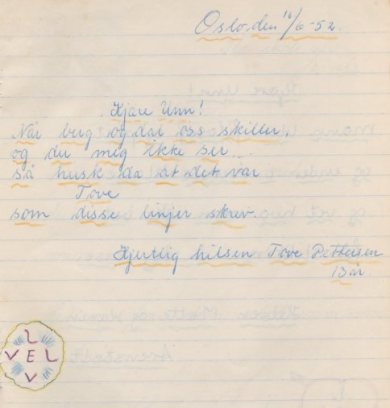 Oslo, den 16/6-52.
Kjære Unn!
Når berg og dal oss skiller,
og du mig ikke ser
så husk da at det var
Tove
som disse linjer skrev.
Hjertlig hilsen Tove Pettersen
13 år.
LEV
VEL